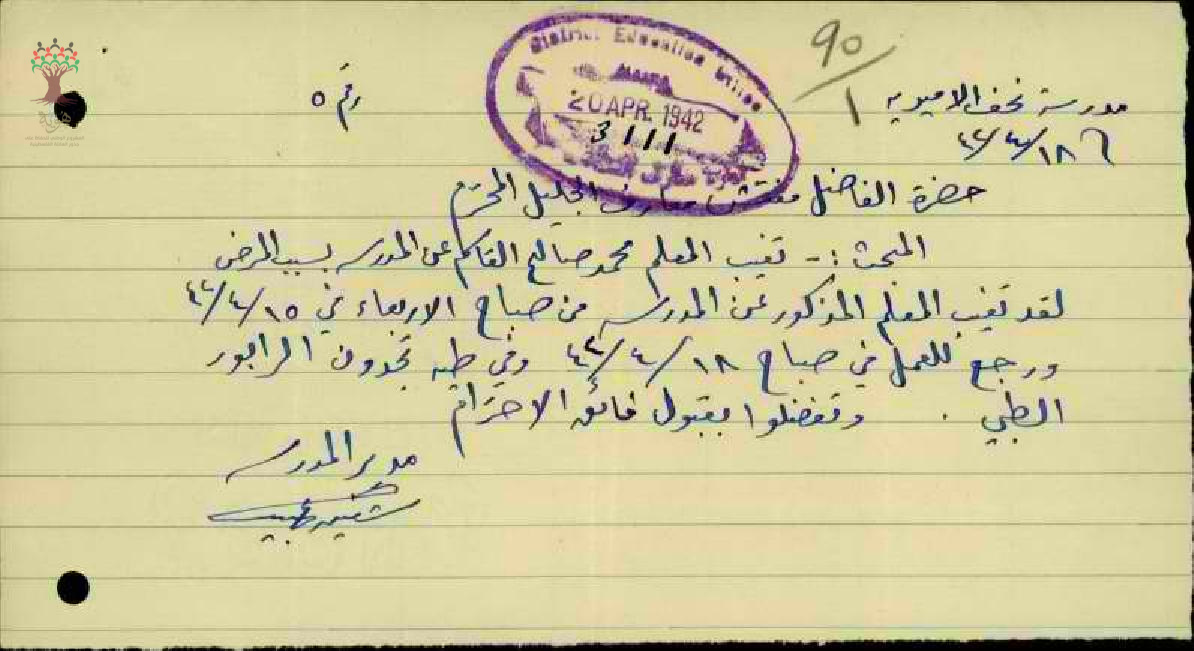 90/1
District Education Office
20 APR. 1942
3111
مدرسة نحف الاميرية
رقم ٥
١٨/٤/٤٢
حضرة الفاضل مفتش معارف الجليل المحترم
المبحث :- تغيب المعلم محمد صالح القاسم عن المدرسه بسبب المرض
لقد تغيب المعلم المذكور عن المدرسه من صباح الاربعاء في ١٥/٤/٤٢
ورجع للعمل في صباح ١٨/٤/٤٢ وفي طيه تجدون الرابور
الطبي . وتفضلوا بقبول فائق الاحترام
مدير المدرسه